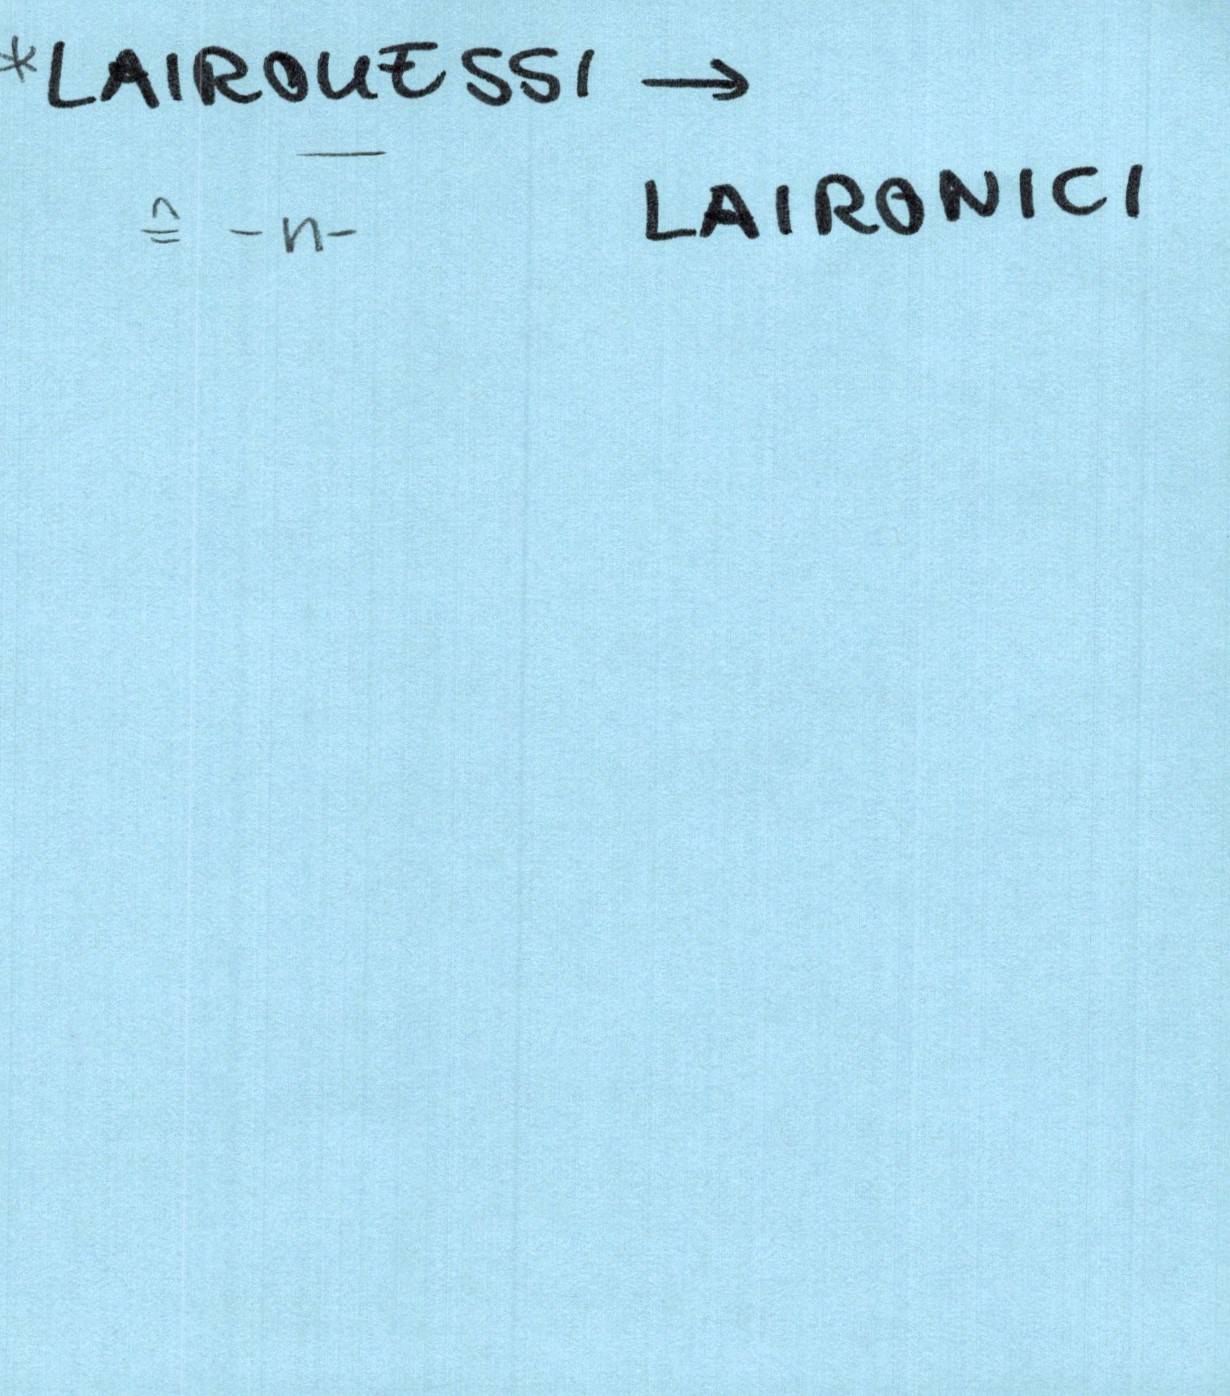 *LAIROUESSI →
LAIRONICI
≙ -n-